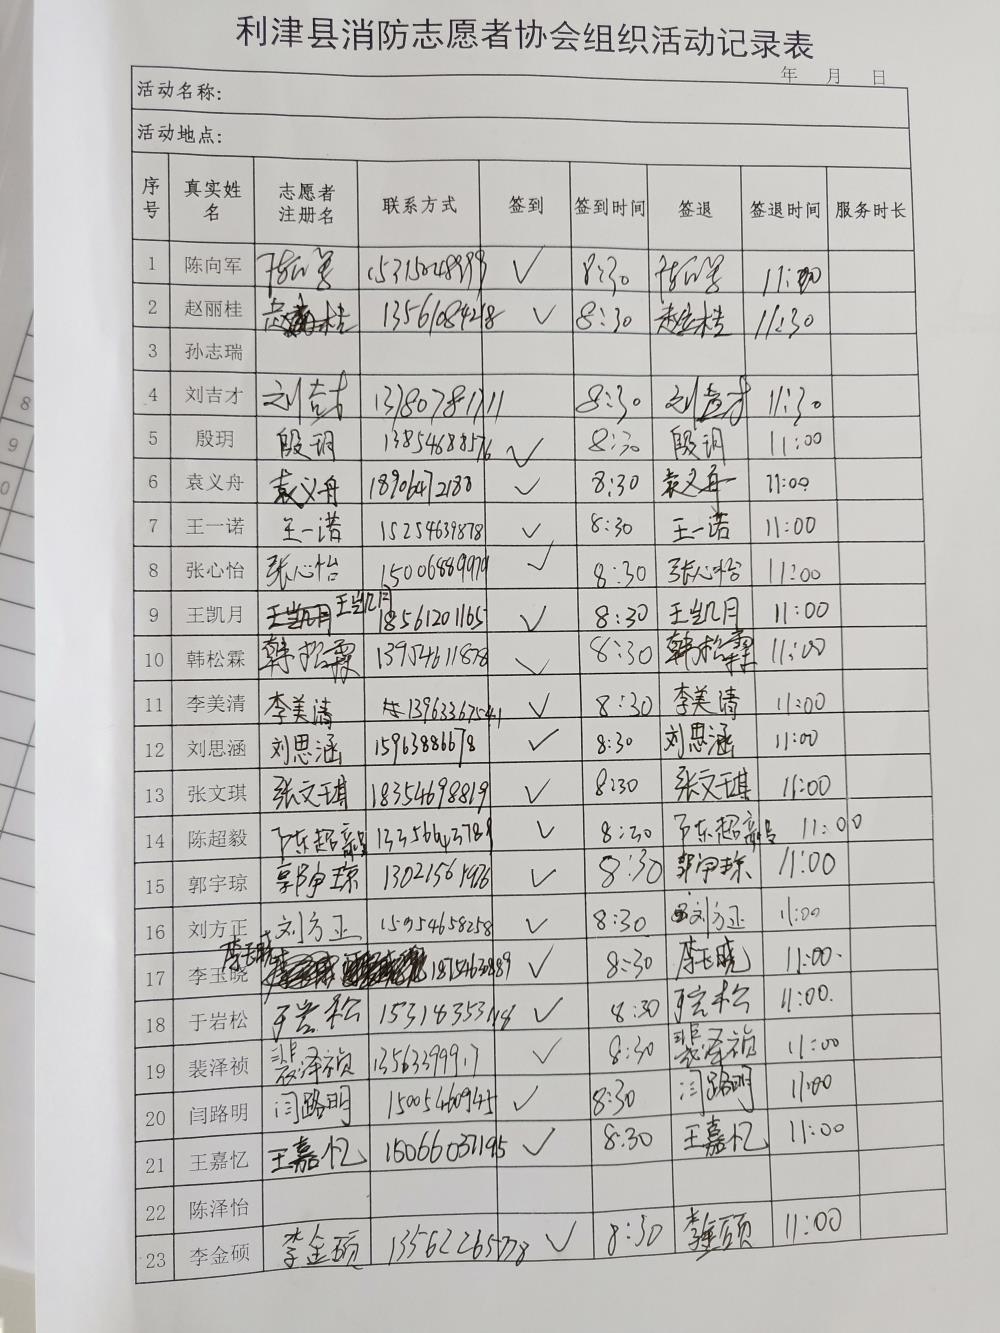 利津县消防志愿者协会组织活动记录表
年 月 日
活动名称:
活动地点:
序号 真实姓名 志愿者注册名 联系方式 签到 签到时间 签退 签退时间 服务时长
1 陈向军 15315048999 ✓ 8:30 11:00
2 赵丽桂 13561084218 ✓ 8:30 11:30
3 孙志瑞
4 刘吉才 刘吉才 13780781711 8:30 刘吉才 11:30
5 殷玥 殷玥 13854688576 ✓ 8:30 殷玥 11:00
6 袁义舟 袁义舟 18906472188 ✓ 8:30 袁义舟 11:00
7 王一诺 王一诺 15254639878 ✓ 8:30 王一诺 11:00
8 张心怡 张心怡 15006889979 ✓ 8:30 张心怡 11:00
9 王凯月 王凯月 王凯月 18561201165 ✓ 8:30 王凯月 11:00
10 韩松霖 韩松霖 13954611878 ✓ 8:30 韩松霖 11:00
11 李美清 李美清 13963367541 ✓ 8:30 李美清 11:00
12 刘思涵 刘思涵 15963886678 ✓ 8:30 刘思涵 11:00
13 张文琪 张文琪 18354698819 ✓ 8:30 张文琪 11:00
14 陈超毅 陈超毅 13356643789 ✓ 8:30 陈超毅 11:00
15 郭宇琼 郭宇琼 13021561976 ✓ 8:30 郭宇琼 11:00
16 刘方正 刘方正 15954658258 ✓ 8:30 刘方正 11:00
17 李玉晓 李玉晓 ✓ 8:30 李玉晓 11:00
18 于岩松 于岩松 ✓ 8:30 于岩松 11:00
19 裴泽祯 裴泽祯 ✓ 8:30 裴泽祯 11:00
20 闫路明 闫路明 15005460945 ✓ 8:30 闫路明 11:00
21 王嘉忆 王嘉忆 15066037195 ✓ 8:30 王嘉忆 11:00
22 陈泽怡
23 李金硕 李金硕 ✓ 8:30 李金硕 11:00
8
9
0